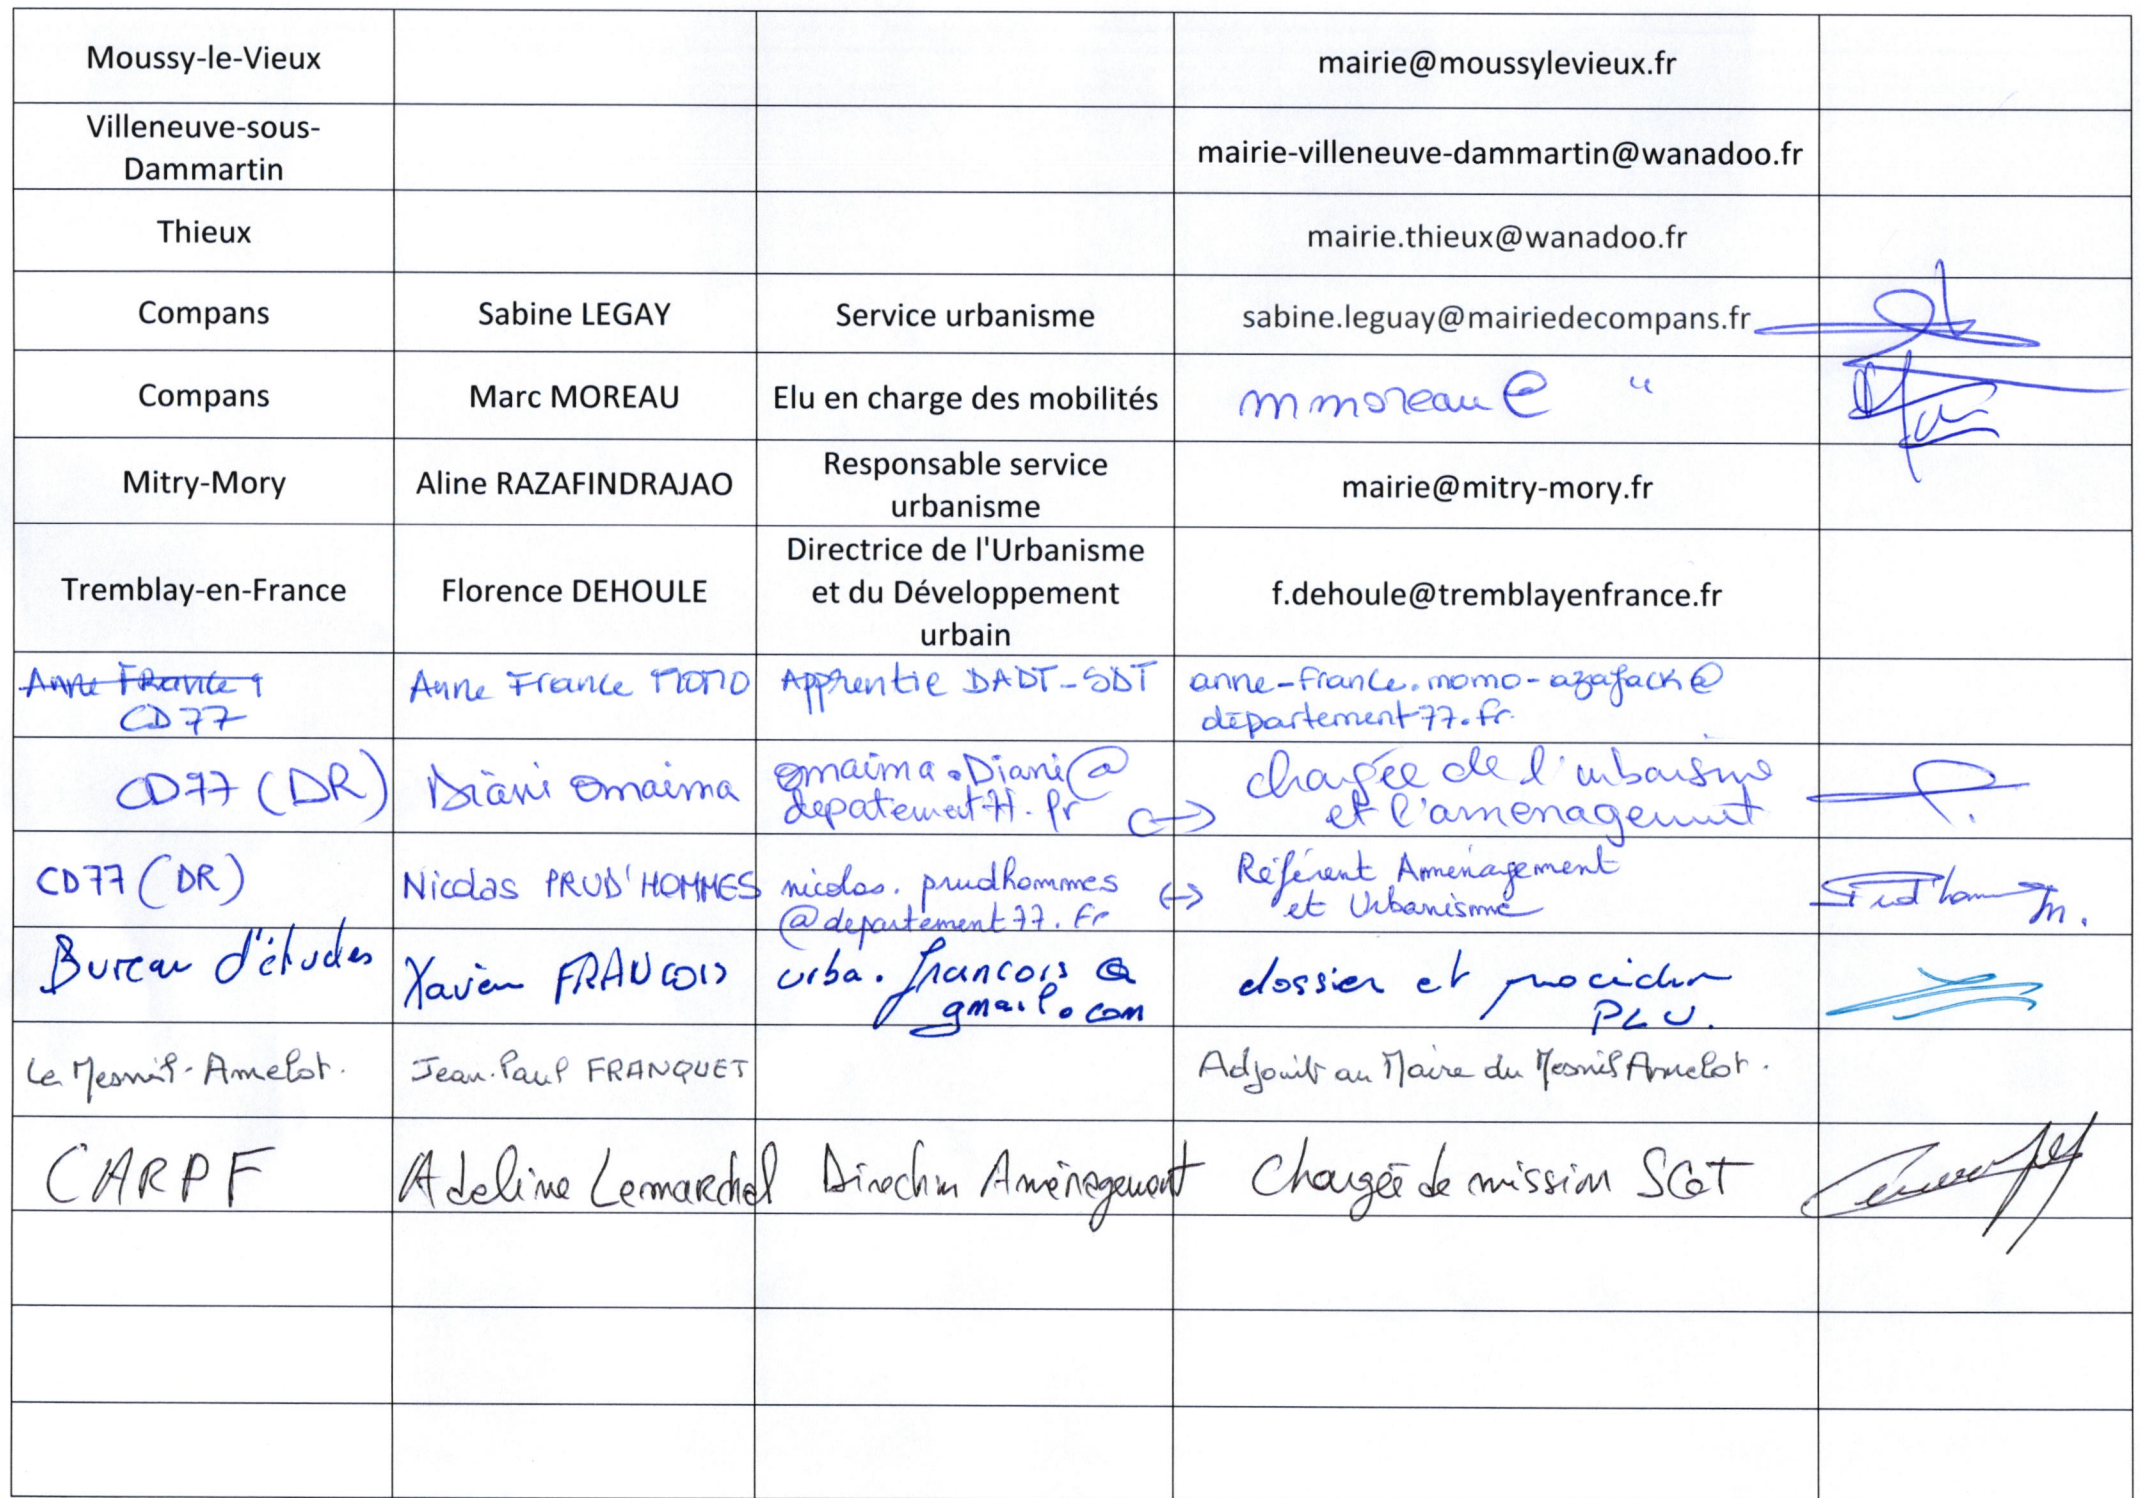 Moussy-le-Vieux
mairie@moussylevieux.fr
Villeneuve-sous-
Dammartin
mairie-villeneuve-dammartin@wanadoo.fr
Thieux
mairie.thieux@wanadoo.fr
Compans
Sabine LEGAY
Service urbanisme
sabine.leguay@mairiedecompans.fr
Compans
Marc MOREAU
Elu en charge des mobilités
mmoreau@ "
Mitry-Mory
Aline RAZAFINDRAJAO
Responsable service
urbanisme
mairie@mitry-mory.fr
Tremblay-en-France
Florence DEHOULE
Directrice de l'Urbanisme
et du Développement
urbain
f.dehoule@tremblayenfrance.fr
Anne France
CD77
Anne France MOMO
Apprentie DADT-SDT
anne-france.momo-azafack@
département77.fr
CD77 (DR)
Diani Omaima
omaima.Diani@
depatement77.fr
chargée de l'urbaisme
et l'aménagement
CD77 (DR)
Nicolas PRUD'HOMMES
nicolas.prudhommes
@departement77.fr
Référent Aménagement
et Urbanisme
Bureau d'études
Xavier FRANCOIS
urba.francois@
gmail.com
dossier et procédure
PLU.
Le Mesnil-Amelot.
Jean-Paul FRANQUET
Adjoint au Maire du Mesnil Amelot.
CARPF
Adeline Lemarchal
Direction Aménagement
Chargée de mission SCoT